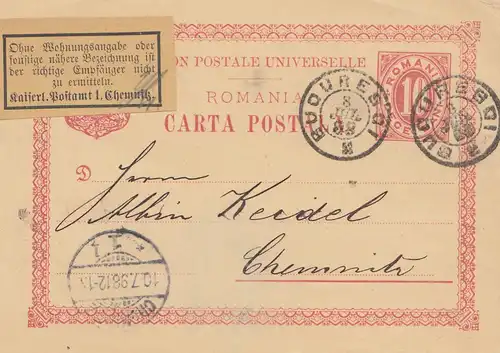 Ohne Wohnungsangabe oder
sonstige nähere Bezeichnung ist
der richtige Empfänger nicht
zu ermitteln.
Kaiserl. Postamt 1. Chemnitz.
ON POSTALE UNIVERSELLE
ROMANIA
CARTA POST
ROMANIA
10
BUCURESCI
8
IUL
98
BUCURESCI
D
Herrn
Albin Keidel
Chemnitz
1
10.7.98.12-1